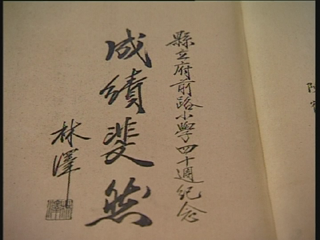 縣立府前路小學四十週紀念
成績斐然
林澤